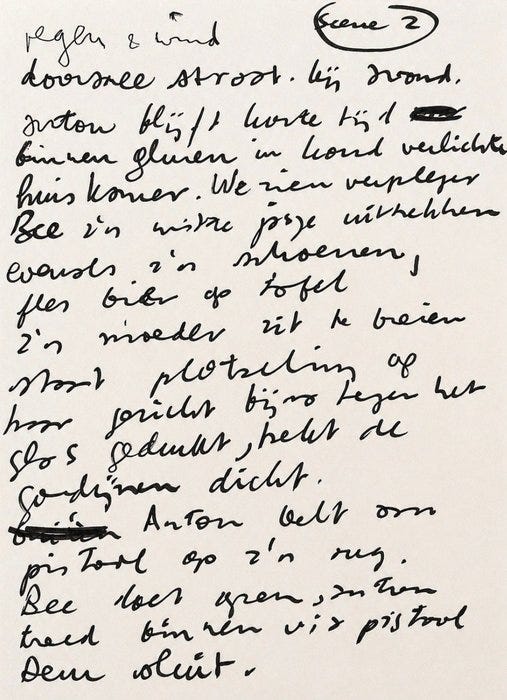 regen & wind
Scene 2
doorsnee straat. bij avond.
anton blijft korte tijd
binnen gluren in hond verlichte
huiskamer. We zien verpleger
Bee z'n witte jasje uittrekken
evenals z'n schoenen,
fles bier op tafel
z'n moeder zit te breien
staat plotseling op
haar gezicht bijna tegen het
glas gedrukt, trekt de
gordijnen dicht.
Anton belt om
pistool op z'n rug.
Bee doet open, anton
treed binnen via pistool
Deur sluit.